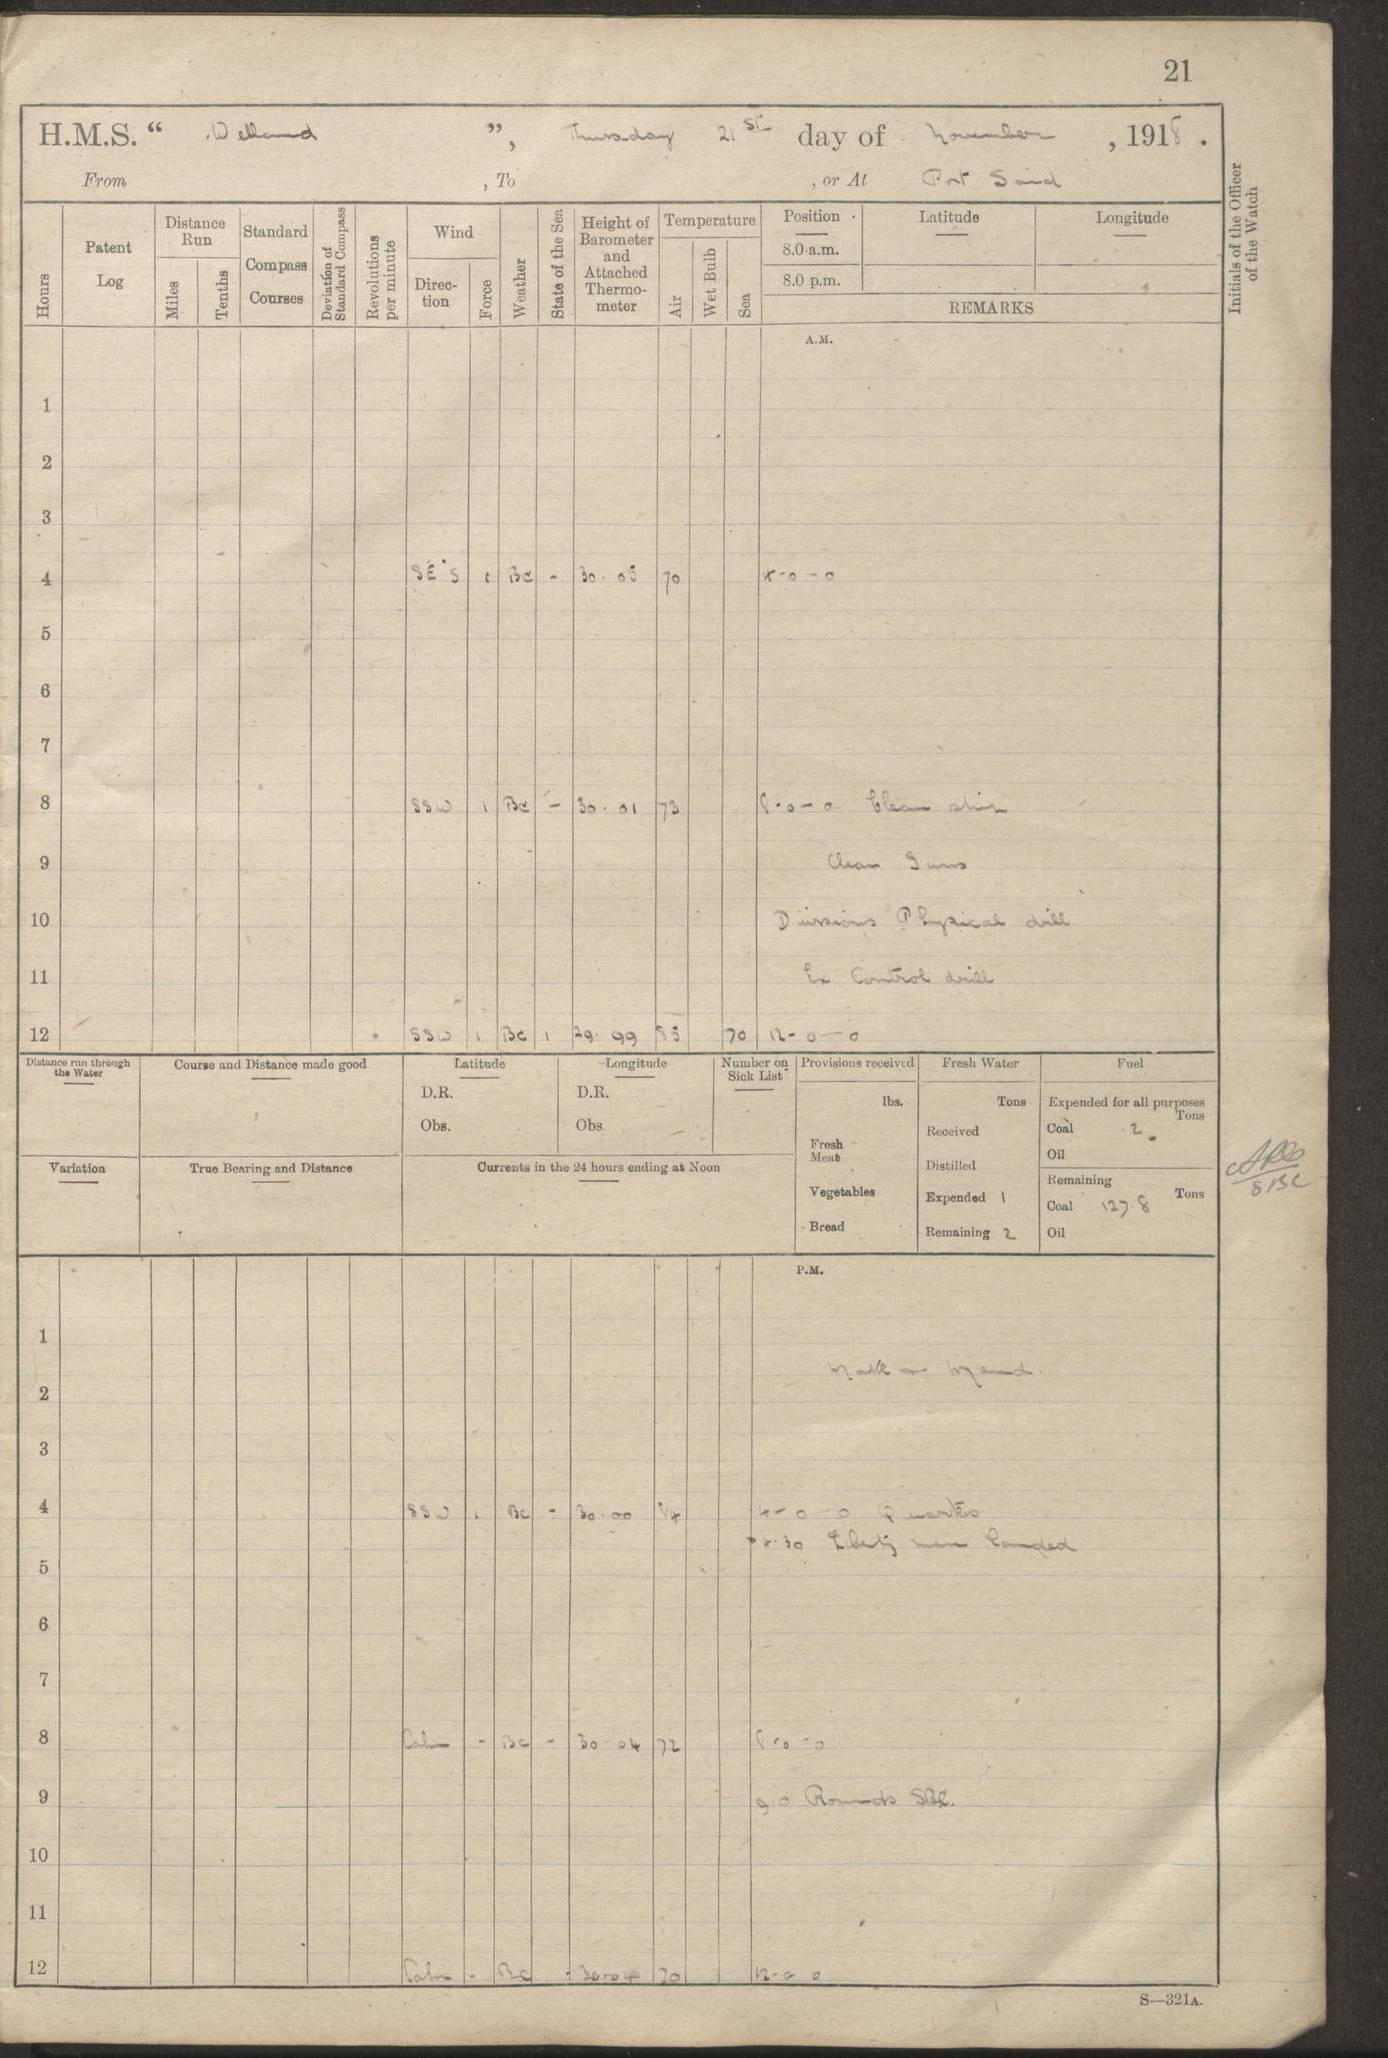 21
H.M.S. “ Welland ”, Thursday 21st day of November, 1918.
From , To , or At Port Said
Hours
Patent Log
Distance Run
Miles
Tenths
Standard Compass Courses
Deviation of Standard Compass
Revolutions per minute
Wind
Direction
Force
Weather
State of the Sea
Height of Barometer and Attached Thermometer
Temperature
Air
Wet Bulb
Sea
Position
8.0 a.m.
8.0 p.m.
Latitude
Longitude
REMARKS
Initials of the Officer of the Watch
A.M.
1
2
3
4 SE'S 1 Bc - 30.05 70 4-0-0
5
6
7
8 SSW 1 Bc - 30.01 73 8-0-0 Clean ship
9 Clean Guns
10 Divisions Physical drill
11 Ex Control drill
12 SSW 1 Bc 1 29.99 85 70 12-0-0
Distance run through the Water
Course and Distance made good
Latitude
D.R.
Obs.
Longitude
D.R.
Obs
Number on Sick List
Provisions received
lbs.
Fresh Meat
Vegetables
Bread
Fresh Water
Tons
Received
Distilled
Expended 1
Remaining 2
Fuel
Expended for all purposes
Tons
Coal 2.
Oil
Remaining
Tons
Coal 127.8
Oil
Variation
True Bearing and Distance
Currents in the 24 hours ending at Noon
P.M.
1
Make & Mend.
2
3
4 SSW 1 Bc - 30.00 84 4-0-0 Quarters
4.30 Liberty men landed
5
6
7
8 Calm - Bc - 30.04 72 8-0-0
9 9.0 Rounds
10
11
12 Calm - Bc - 30.04 70 12-0-0
S—321A.